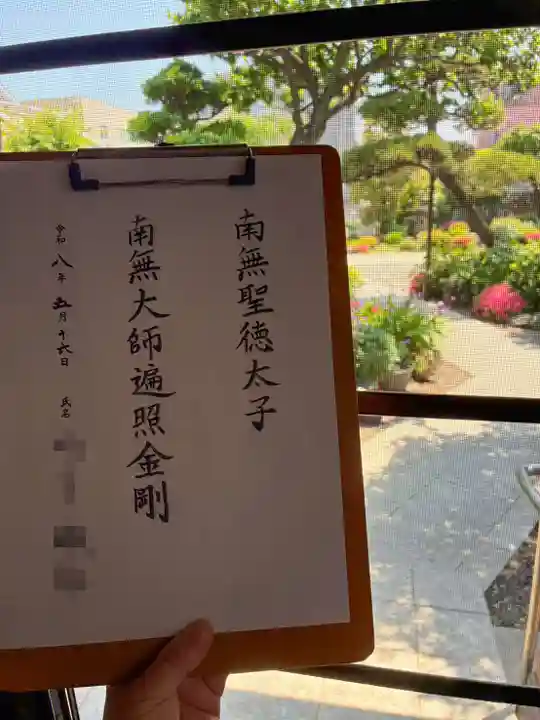 南無聖徳太子
南無大師遍照金剛
令和八年五月十六日 氏名